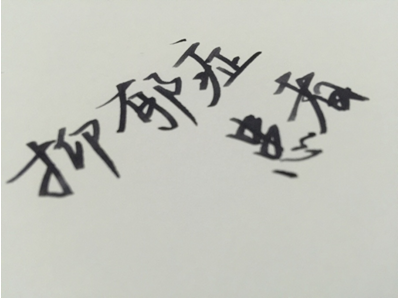 抑郁症
患者